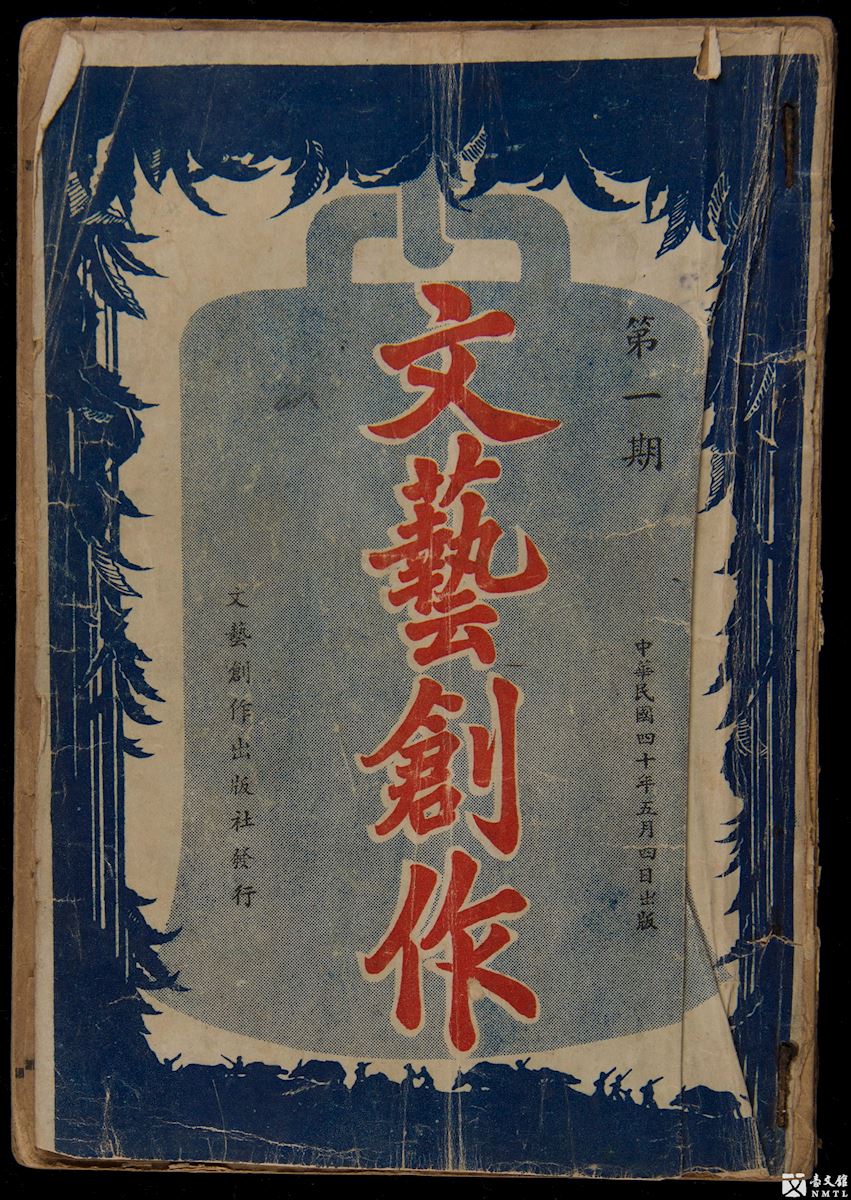 第一期
中華民國四十年五月四日出版
文藝創作
文藝創作出版社發行
臺文館
NMTL